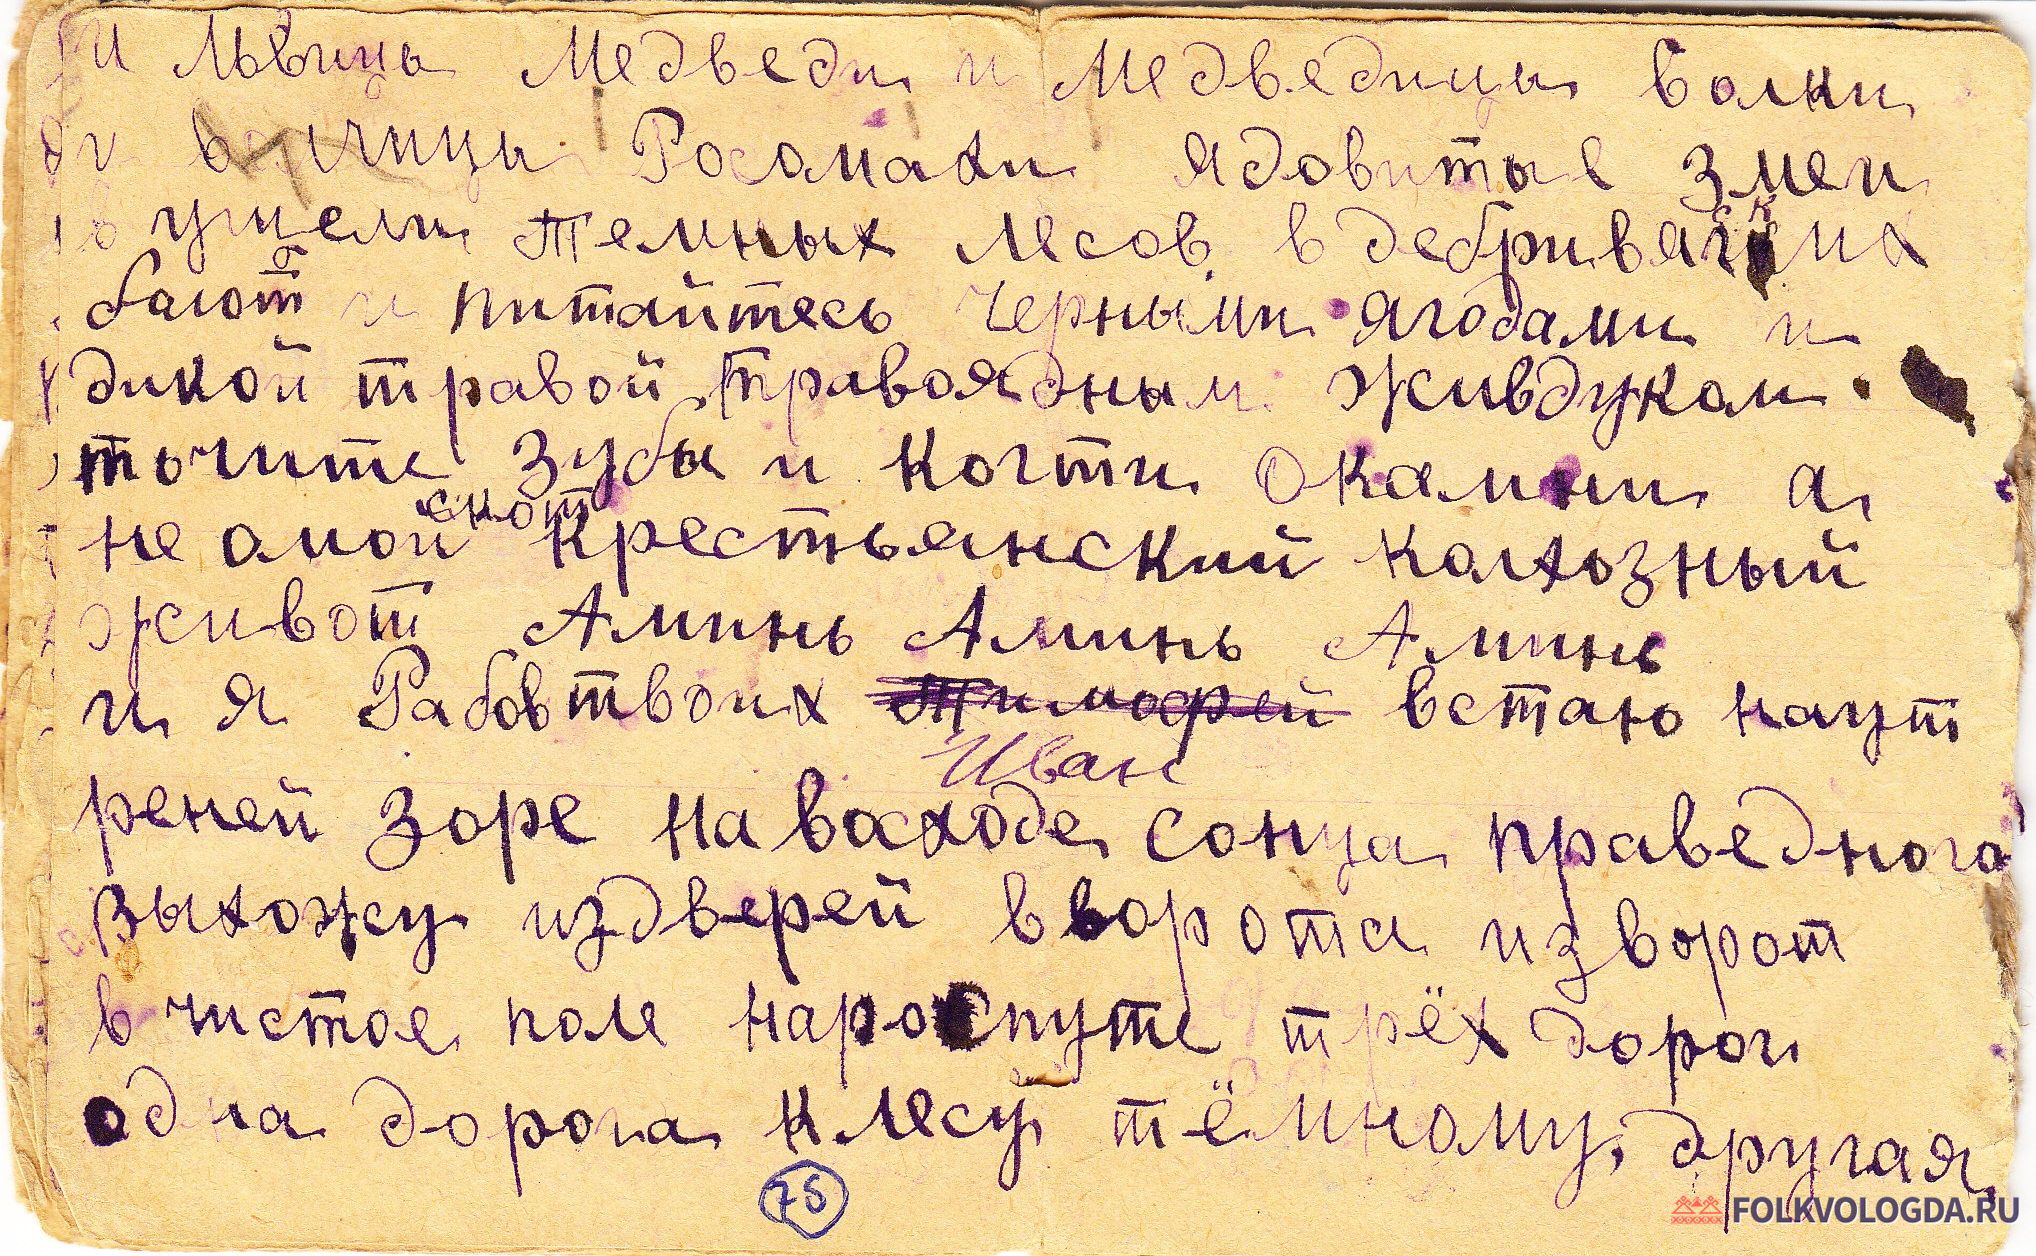 и львицы Медведи и Медведицы волки
и волчицы Росомахи ядовитые змеи
в ущели темных лесов в дебри вяских
балот и питайтесь черными ягодами и
дикой травой травоядным живдуком
точите зубы и когти окамни а
не омой скот крестьянский колхозный
живот Аминь Аминь Аминь
и я Рабов твоих Тимофей встаю наут
Иван
реней зоре на восходе сонца праведного
выхожу издверей в ворота изворот
в чистое поле нароспутье трёх дорог
одна дорога к лесу тёмному, другая
75
FOLKVOLOGDA.RU